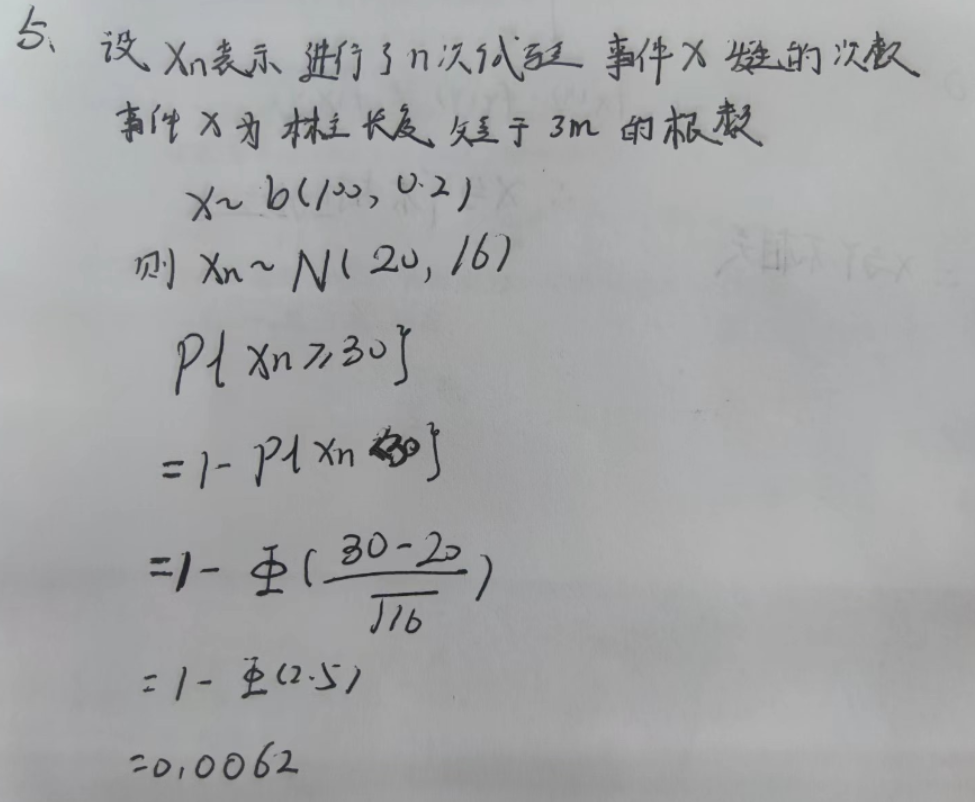 5、设 Xn表示 进行了n次试验 事件X 发生的次数
事件 X 为 木柱 长度 短于 3m 的根数
X~ b(100, 0.2)
则 Xn ~ N( 20, 16)
P{ Xn ≥ 30}
= 1 - P{ Xn <30}
= 1 - Φ( (30-20)/√16 )
= 1 - Φ(2.5)
=0.0062